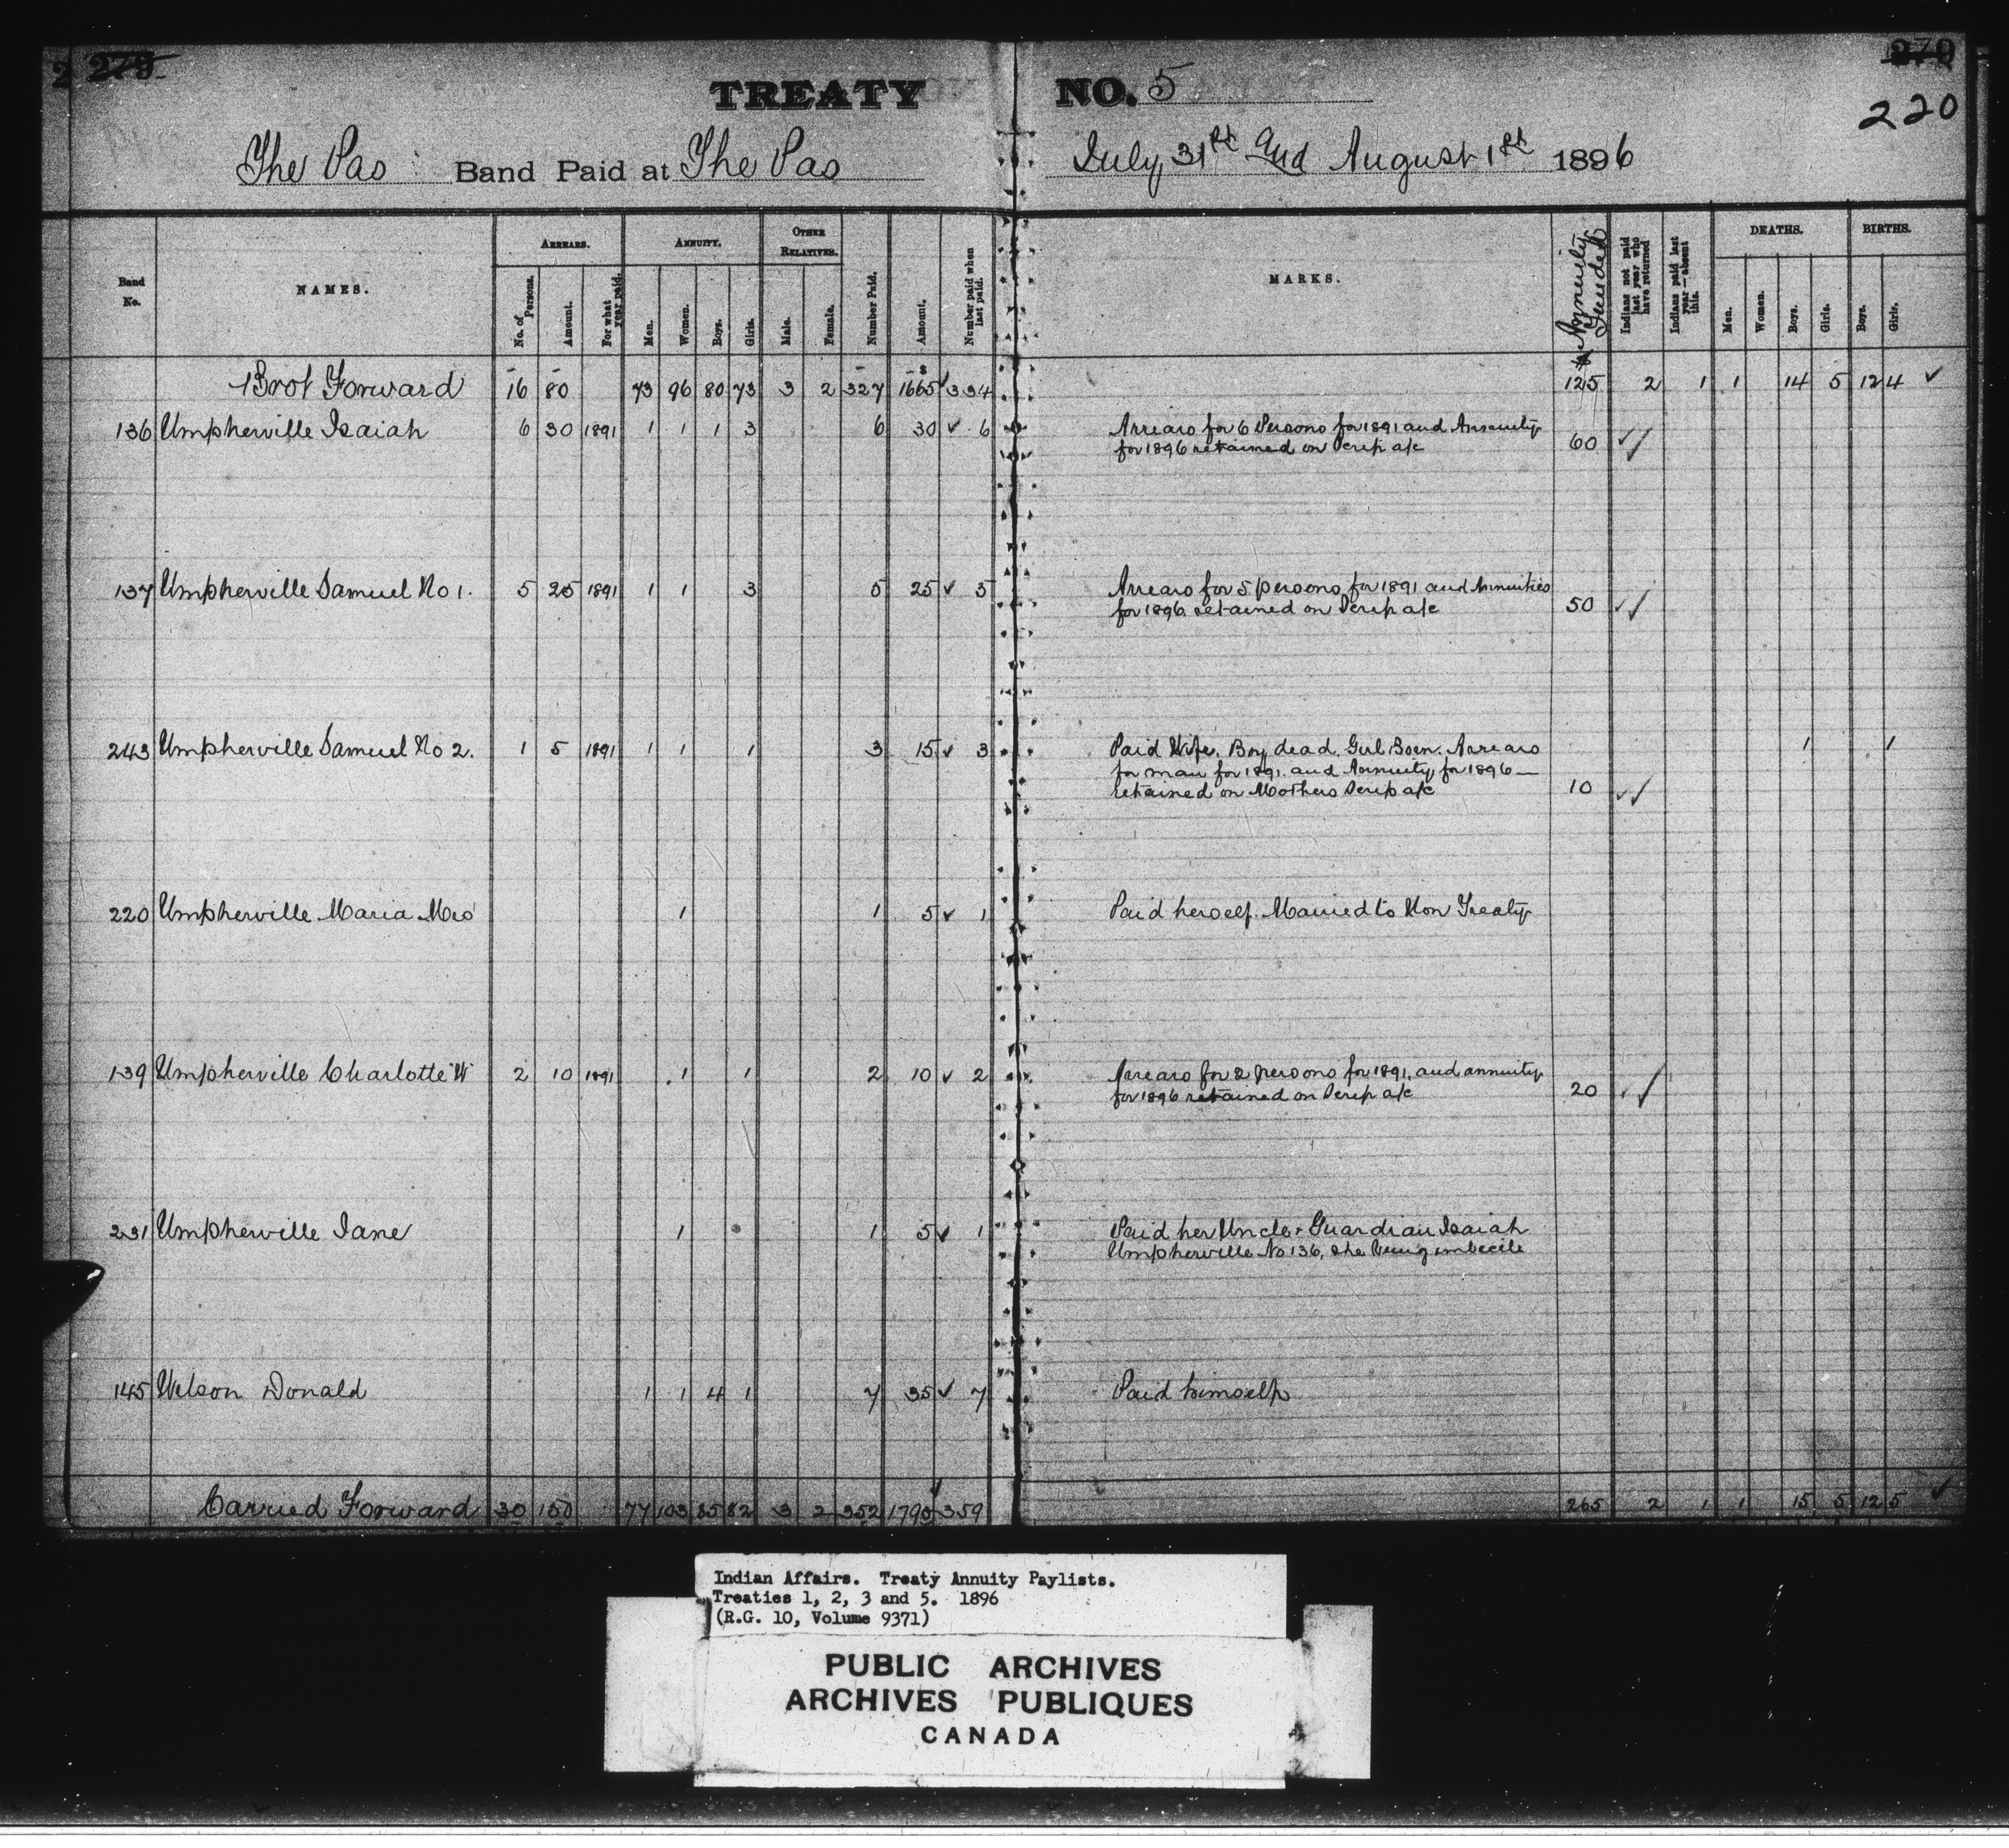 279 279
220
TREATY NO. 5
The Pas Band Paid at The Pas July 31st and August 1st 1896
Band No. NAMES. ARREARS. No. of Persons. Amount. For what year paid. ANNUITY. Men. Women. Boys. Girls. OTHER RELATIVES. Male. Female. Number Paid. Amount. Number paid when last paid. MARKS. Annuity Funded Indians not paid last year who have returned Indians paid last year—absent this. DEATHS. Men. Women. Boys. Girls. BIRTHS. Boys. Girls.
Brot Forward 16 80 73 96 80 73 3 2 327 $1665 ✓ 334 125 2 1 1 14 5 12 4 ✓
136 Umpherville Isaiah 6 30 1891 1 1 1 3 6 30 ✓ 6 Arrears for 6 Persons for 1891 and Annuity
for 1896 retained on Scrip a/c 60 ✓✓
137 Umpherville Samuel No 1. 5 25 1891 1 1 3 5 25 ✓ 5 Arrears for 5 persons for 1891 and Annuities
for 1896 retained on Scrip a/c 50 ✓✓
243 Umpherville Samuel No 2. 1 5 1891 1 1 1 3 15 ✓ 3 Paid Wife. Boy dead. Girl Born. Arrears 1 1
for man for 1891. and Annuity for 1896—
retained on Mothers Scrip a/c 10 ✓✓
220 Umpherville Maria Mrs 1 1 5 ✓ 1 Paid herself. Married to Non Treaty
139 Umpherville Charlotte W 2 10 1891 1 1 2 10 ✓ 2 Arrears for 2 persons for 1891. and annuity
for 1896 retained on Scrip a/c 20 ✓✓
231 Umpherville Jane 1 1 5 ✓ 1 Paid her Uncle + Guardian Isaiah
Umpherville No 136, she being imbecile
145 Wilson Donald 1 1 4 1 7 35 ✓ 7 Paid himself
Carried Forward 30 150 77 103 85 82 3 2 352 1790 ✓ 359 265 2 1 1 15 5 12 5 ✓
Indian Affairs. Treaty Annuity Paylists.
Treaties 1, 2, 3 and 5. 1896
(R.G. 10, Volume 9371)
PUBLIC ARCHIVES
ARCHIVES PUBLIQUES
CANADA